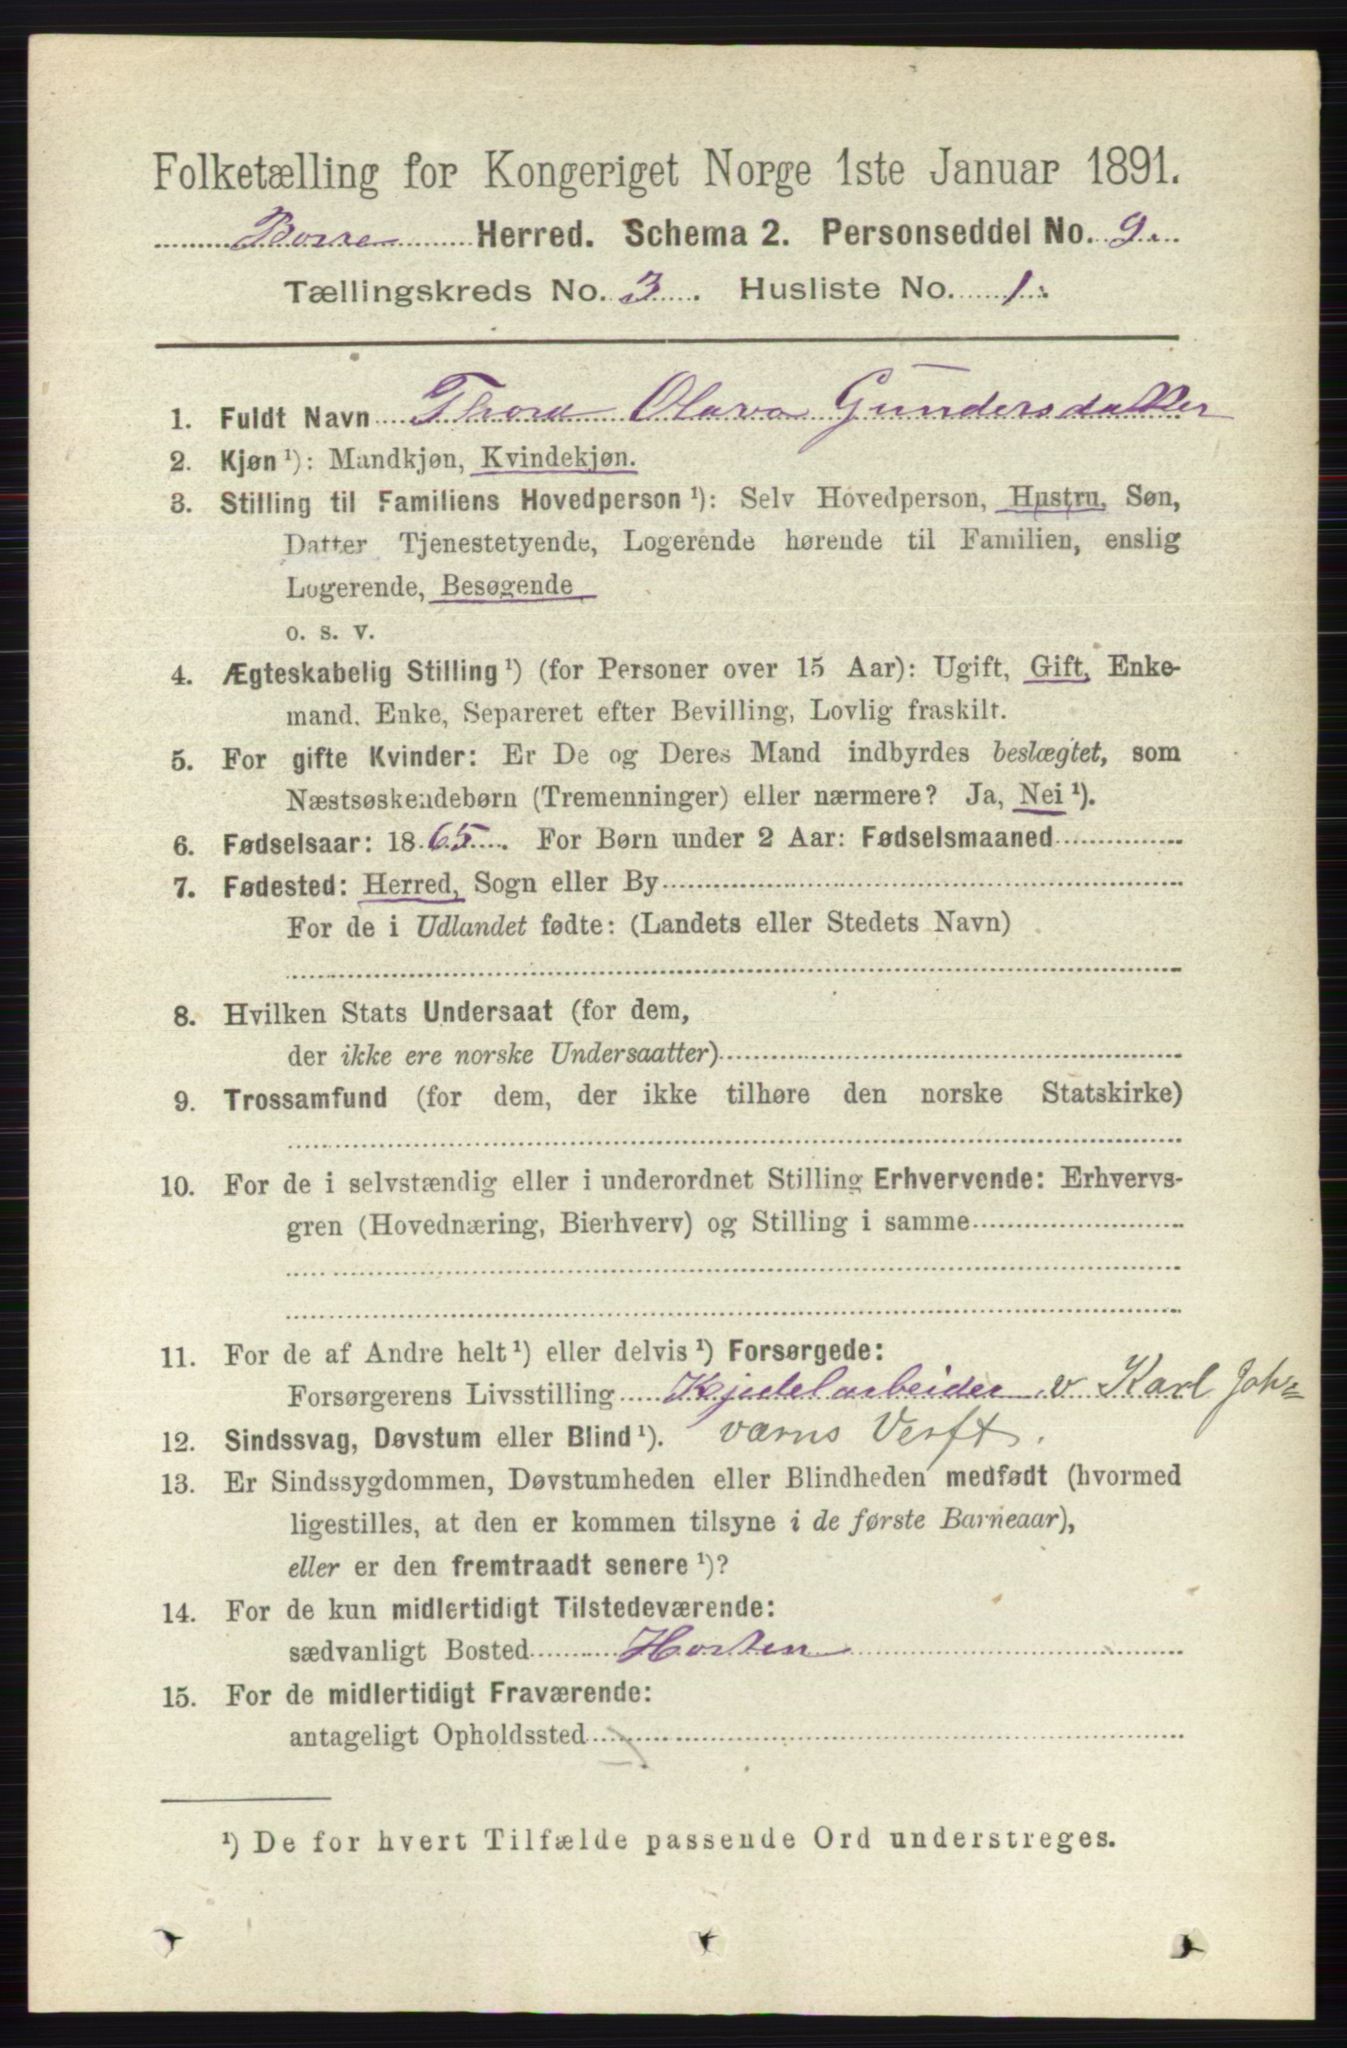 Folketælling for Kongeriget Norge 1ste Januar 1891.
Borre Herred. Schema 2. Personseddel No. 9.
Tællingskreds No. 3. Husliste No. 1.
1. Fuldt Navn Thora Olava Gundersdatter
2. Kjøn ¹): Mandkjøn, Kvindekjøn.
3. Stilling til Familiens Hovedperson ¹): Selv Hovedperson, Hustru, Søn,
Datter Tjenestetyende, Logerende hørende til Familien, enslig
Logerende, Besøgende
o. s. v.
4. Ægteskabelig Stilling ¹) (for Personer over 15 Aar): Ugift, Gift, Enke-
mand, Enke, Separeret efter Bevilling, Lovlig fraskilt.
5. For gifte Kvinder: Er De og Deres Mand indbyrdes beslægtet, som
Næstsøskendebørn (Tremenninger) eller nærmere? Ja, Nei ¹).
6. Fødselsaar: 1865. For Børn under 2 Aar: Fødselsmaaned
7. Fødested: Herred, Sogn eller By
For de i Udlandet fødte: (Landets eller Stedets Navn)
8. Hvilken Stats Undersaat (for dem,
der ikke ere norske Undersaatter)
9. Trossamfund (for dem, der ikke tilhøre den norske Statskirke)
10. For de i selvstændig eller i underordnet Stilling Erhvervende: Erhvervs-
gren (Hovednæring, Bierhverv) og Stilling i samme
11. For de af Andre helt ¹) eller delvis ¹) Forsørgede:
Forsørgerens Livsstilling Kjedelarbeider v Karl Joh=
12. Sindssvag, Døvstum eller Blind ¹). værns Verft.
13. Er Sindssygdommen, Døvstumheden eller Blindheden medfødt (hvormed
ligestilles, at den er kommen tilsyne i de første Barneaar),
eller er den fremtraadt senere ¹)?
14. For de kun midlertidigt Tilstedeværende:
sædvanligt Bosted Horten
15. For de midlertidigt Fraværende:
antageligt Opholdssted
¹) De for hvert Tilfælde passende Ord understreges.